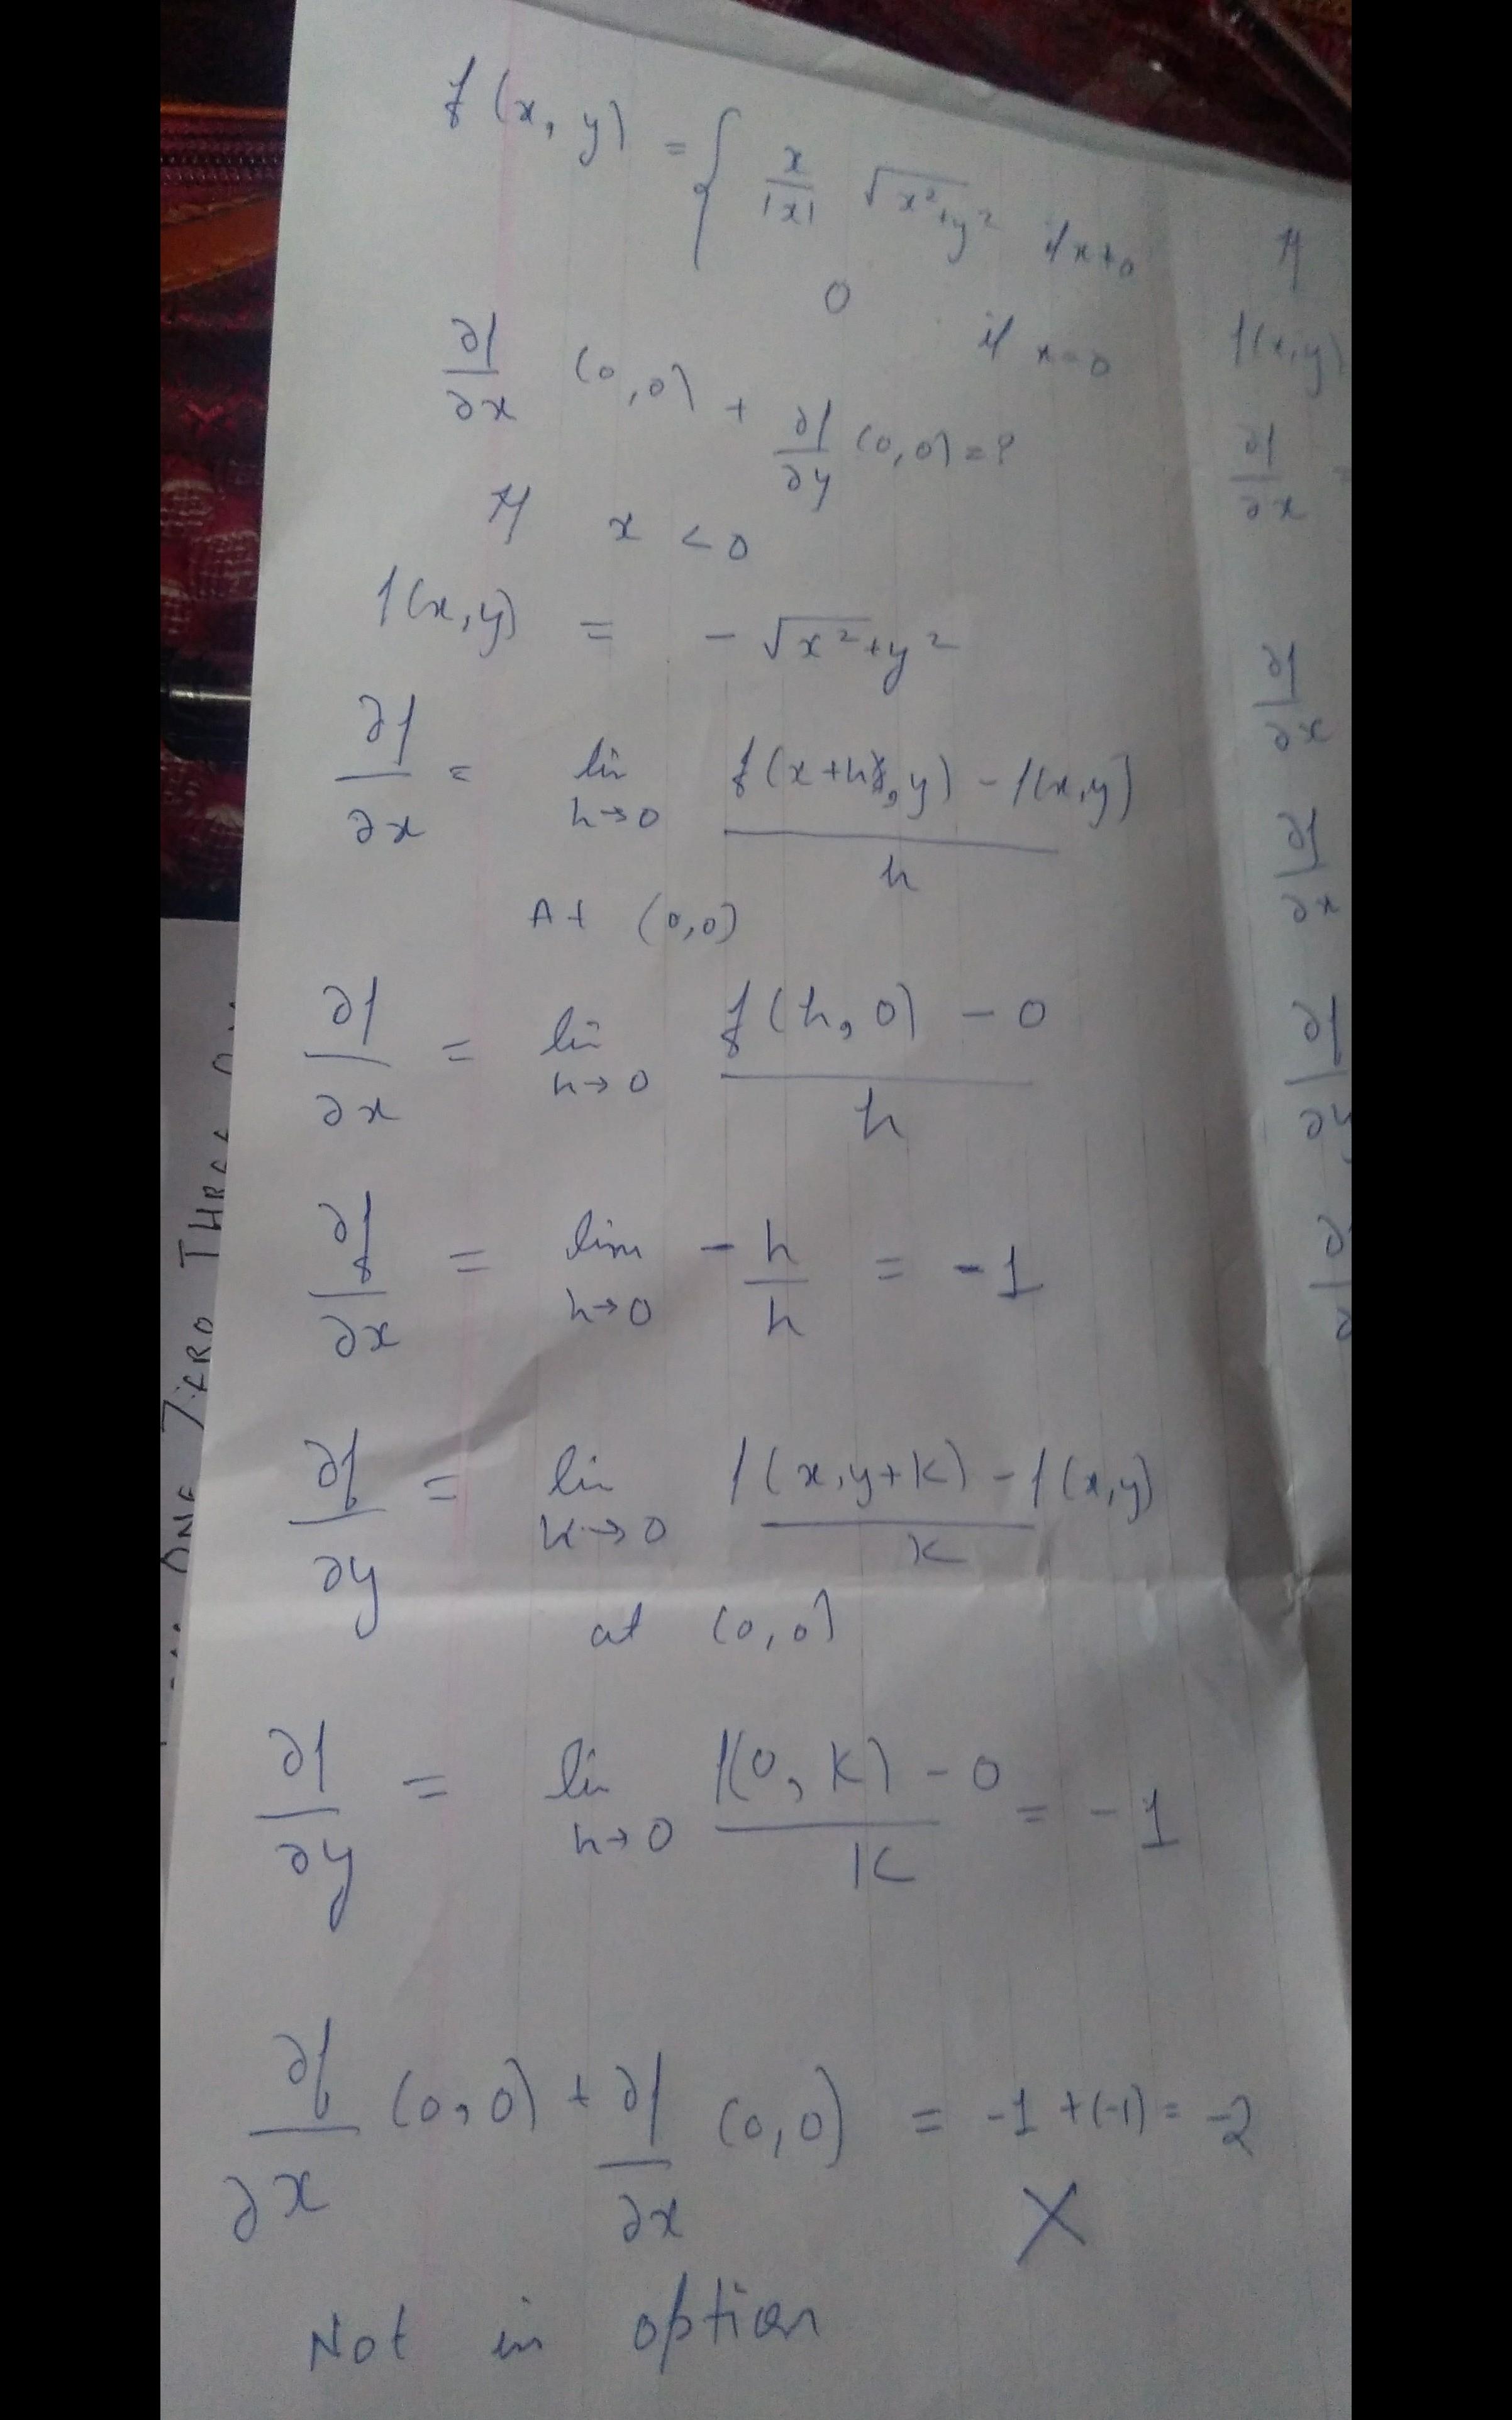 f(x, y) = { x/|x| √x²+y² if x≠0
0 if x=0
∂f/∂x (0,0) + ∂f/∂y (0,0) = ?
If x < 0
f(x,y) = - √x²+y²
∂f/∂x = lim h→0 f(x+h,y) - f(x,y) / h
At (0,0)
∂f/∂x = lim h→0 f(h,0) - 0 / h
∂f/∂x = lim h→0 - h/h = -1
∂f/∂y = lim k→0 f(x,y+k) - f(x,y) / k
at (0,0)
∂f/∂y = lim h→0 f(0,k) - 0 / k = -1
∂f/∂x (0,0) + ∂f/∂x (0,0) = -1 + (-1) = -2
X
Not in option
If
f(x,y)
∂f/∂x =
∂f/∂x
∂f/∂x
∂f/∂y
ONE ZERO THREE